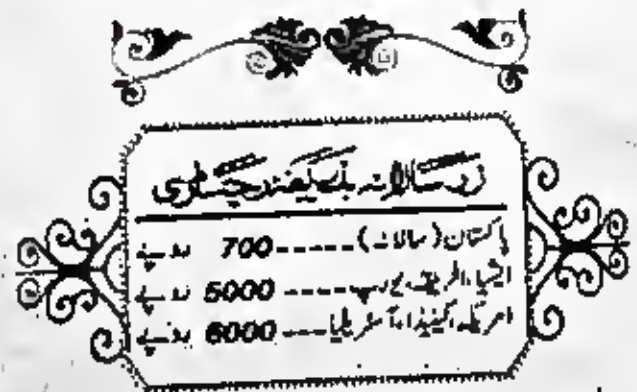 زر سالانہ بذریعہ رجسٹری
پاکستان (سالانہ) ----- 700 روپے
ایشیا، افریقہ، یورپ ---- 5000 روپے
امریکہ، کینیڈا، آسٹریلیا --- 6000 روپے